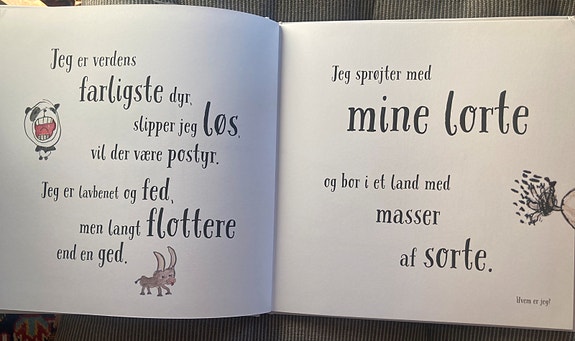 Jeg er verdens
farligste dyr,
slipper jeg løs,
vil der være postyr.
Jeg er lavbenet og fed,
men langt flottere
end en ged.
Jeg sprøjter med
mine lorte
og bor i et land med
masser
af sorte.
Hvem er jeg?